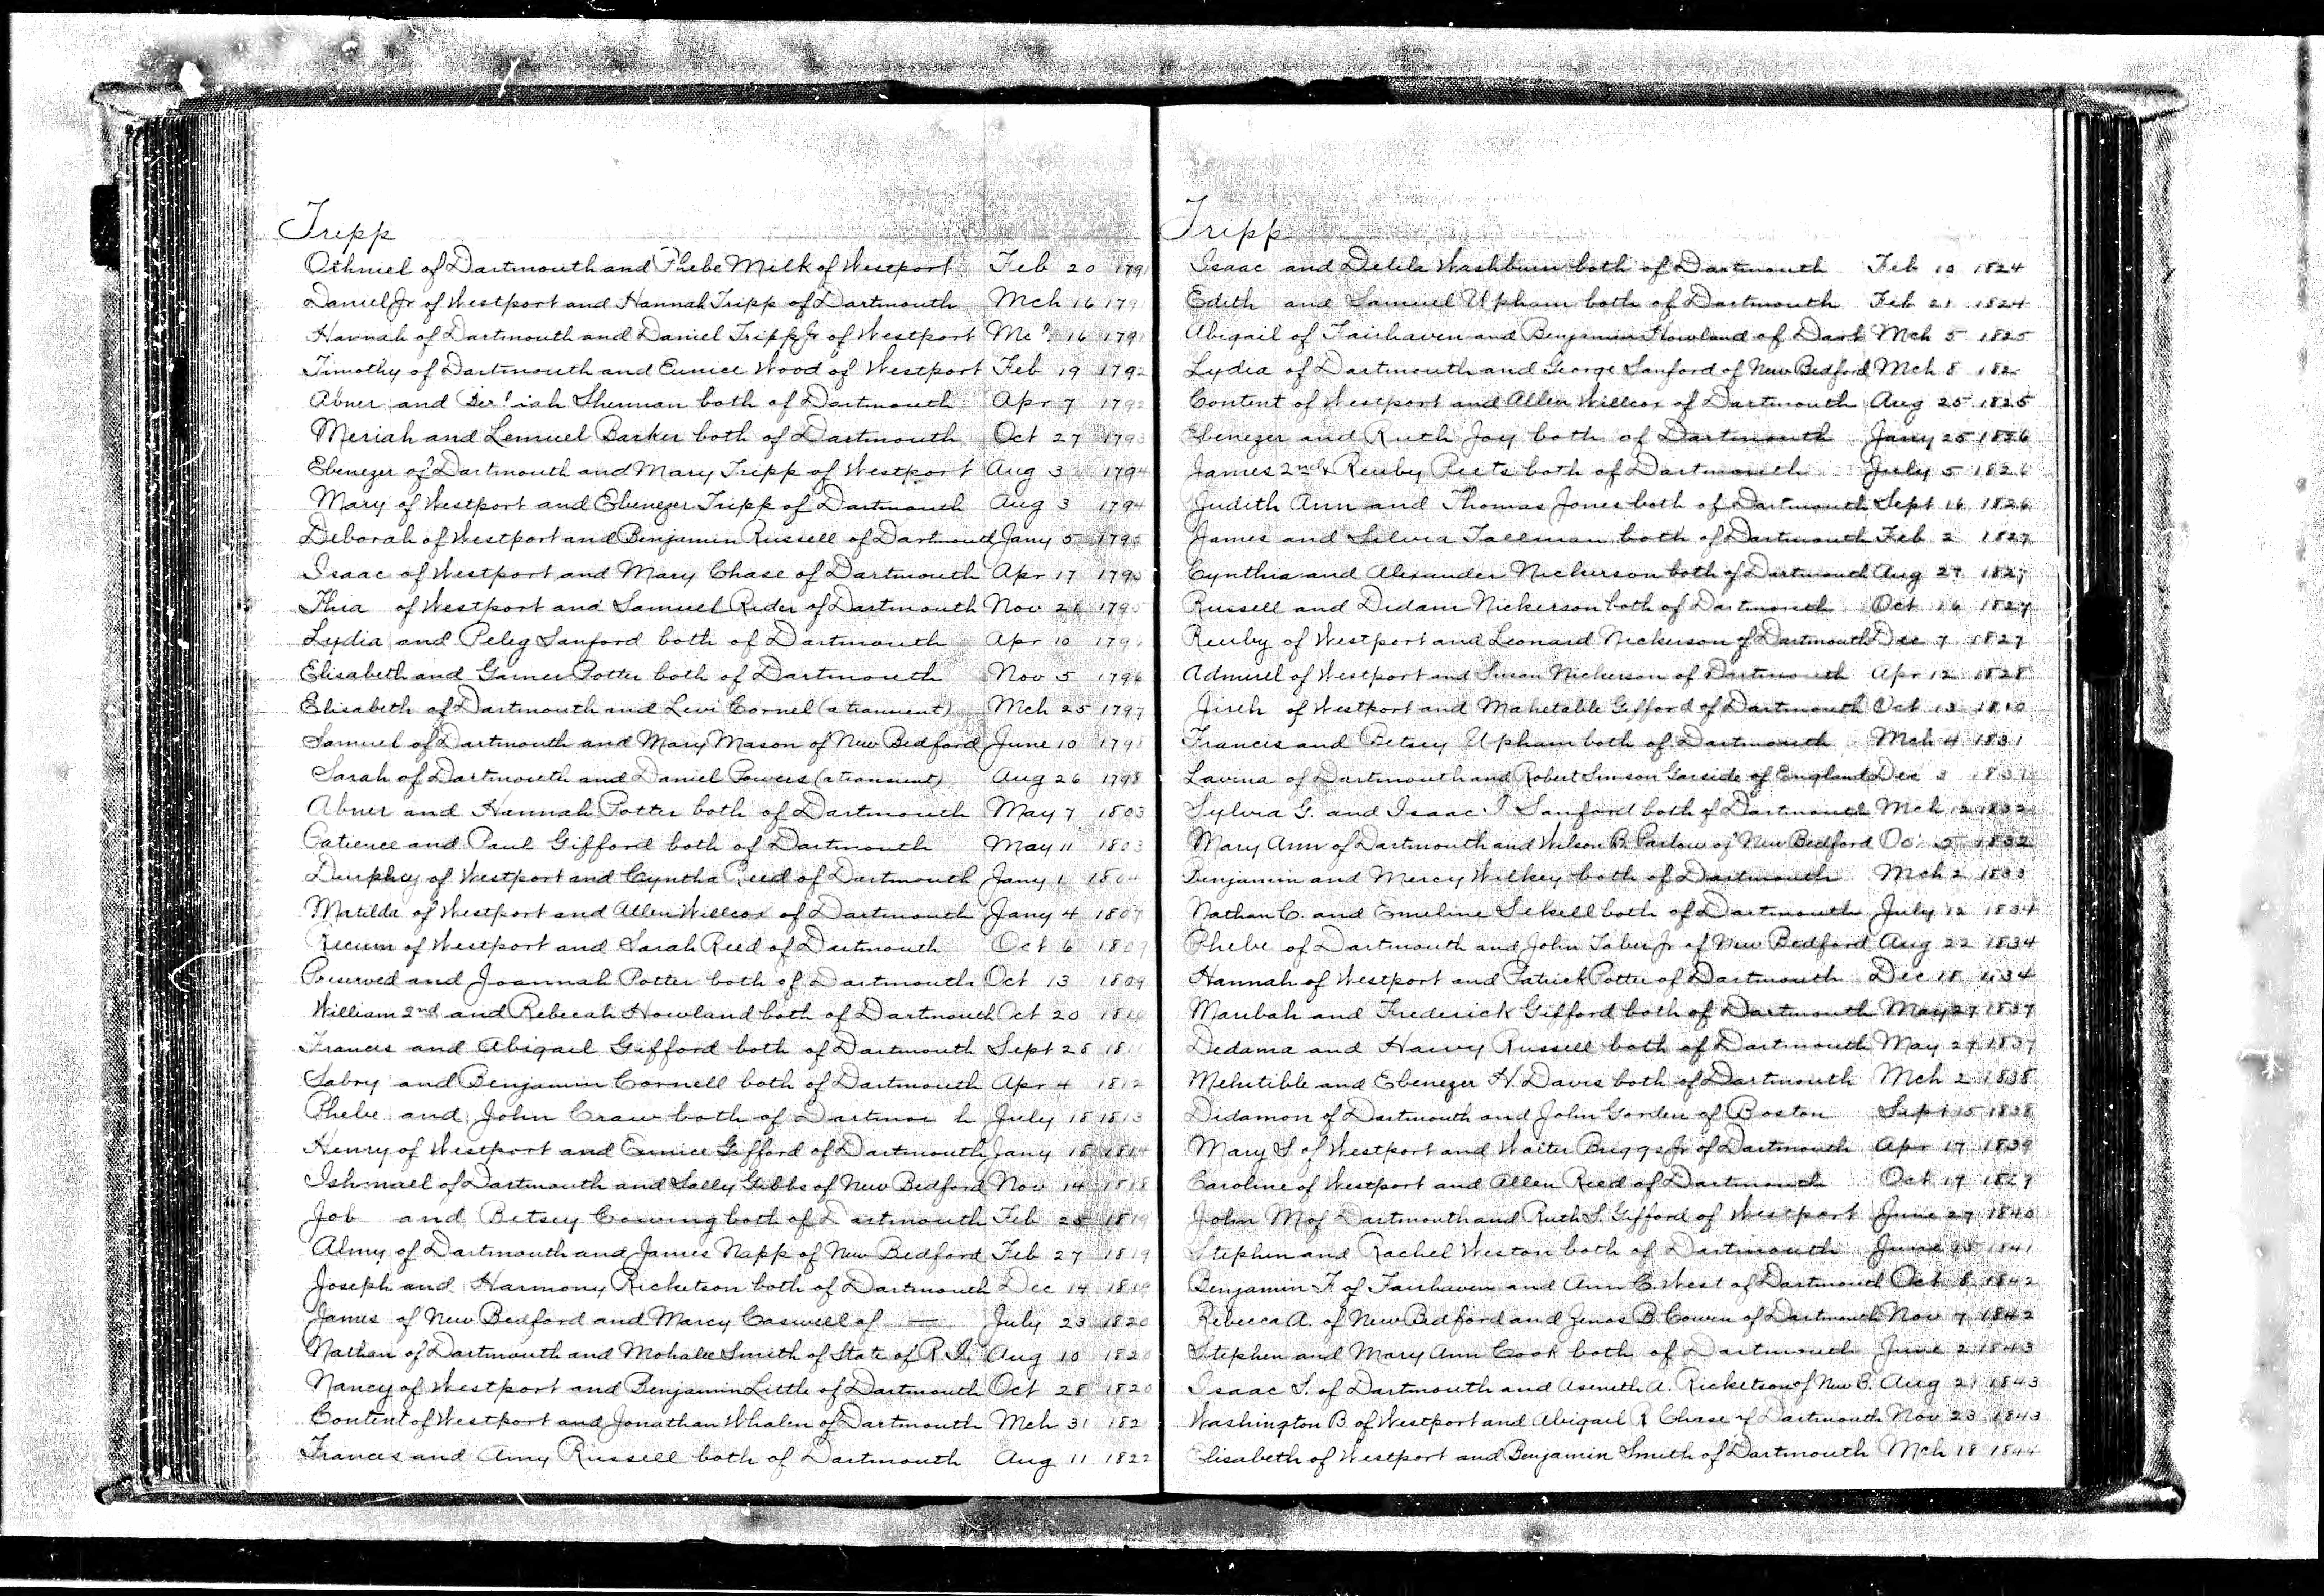 Tripp
Othniel of Dartmouth and Phebe Milk of Westport Feb 20 1791
Daniel Jr of Westport and Hannah Tripp of Dartmouth Mch 16 179
Hannah of Dartmouth and Daniel Tripp Jr of Westport 16 1791
Timothy of Dartmouth and Eunice Wood of Westport Feb 19 1792
Abner and Sherman both of Dartmouth Apr 7 1792
Meriah and Lemuel Barker both of Dartmouth Oct 27 1793
Ebenezer of Dartmouth and Mary Tripp of Westport Aug 3 1794
Mary of Westport and Ebenezer Tripp of Dartmouth Aug 3 1794
Deborah of Westport and Benjamin Russell of Dartmouth Jany 5
Isaac of Westport and Mary Chase of Dartmouth Apr 17
Thia of Westport and Samuel Rider of Dartmouth Nov 21 1795
Lydia and Peleg Sanford both of Dartmouth Apr 10
Elisabeth and Garner Potter both of Dartmouth Nov 5 1796
Elisabeth of Dartmouth and Levi Cornel (a transient) Mch 25 1797
Samuel of Dartmouth and Mary Mason of New Bedford June 10 1798
Sarah of Dartmouth and Daniel Powers (a transient) Aug 26 1798
Abner and Hannah Potter both of Dartmouth May 7 1803
Patience and Paul Gifford both of Dartmouth May 11 1803
Durphey of Westport and Cyntha Reed of Dartmouth Jany 1 1804
Matilda of Westport and Allen Willcox of Dartmouth Jany 4 1807
of Westport and Sarah Reed of Dartmouth Oct 6 1809
Preserved and Joannah Potter both of Dartmouth Oct 13 1809
William 2nd and Rebecah Howland both of Dartmouth Oct 20
Francis and Abigail Gifford both of Dartmouth Sept 28 1811
Sabry and Benjamin Cornell both of Dartmouth Apr 4 1812
Phebe and John Craw both of July 18 1813
Henry of Westport and Eunice Gifford of Dartmouth Jany 18 1814
Ishmael of Dartmouth and Sally Gibbs of New Bedford Nov 14 1818
Job and Betsey Cowing both of Dartmouth Feb 25 1819
Almy of Dartmouth and James Napp of New Bedford Feb 27 1819
Joseph and Harmony Ricketson both of Dartmouth Dec 14 1819
James of New Bedford and Marcy Caswell of — July 23 1820
Nathan of Dartmouth and Mohalee Smith of State of R.I. Aug 10 1820
Nancy of Westport and Benjamin Little of Dartmouth Oct 28 1820
Content of Westport and Jonathan Whalen of Dartmouth Mch 31 182
Frances and Amy Russell both of Dartmouth Aug 11 1822
Tripp
Isaac and Delila Washburn both of Dartmouth Feb 10 1824
Edith and Samuel Upham both of Dartmouth Feb 21 1824
Abigail of Fairhaven and Benjamin Howland of Dart Mch 5 1825
Lydia of Dartmouth and George Sanford of New Bedford Mch 8 182
Content of Westport and Allen Willcox of Dartmouth Aug 25 1825
Ebenezer and Ruth Joy both of Dartmouth Jany 25 1826
James 2nd & Reuby Peets both of Dartmouth July 5 1826
Judith Ann and Thomas Jones both of Dartmouth Sept 16 1826
James and Silvia Tallman both of Dartmouth Feb 2 1827
Cynthia and Alexander Nickerson both of Dartmouth Aug 27 1827
Russell and Didam Nickerson both of Dartmouth Oct 16 1827
Reuby of Westport and Leonard Nickerson of Dartmouth Dec 7 1827
Admirel of Westport and Susan Nickerson of Dartmouth Apr 12 1828
Jireh of Westport and Mahetable Gifford of Dartmouth Oct 13
Francis and Betsey Upham both of Dartmouth Mch 4 1831
Lavina of Dartmouth and Robert Simson Garside of England Dec 3 1831
Sylvia G. and Isaac I Sanford both of Dartmouth Mch 12 1832
Mary Ann of Dartmouth and Wilson B. Parlow of New Bedford 5 1832
Benjamin and Mercy Wilkey both of Dartmouth Mch 2 1833
Nathan C. and Emeline Sekell both of Dartmouth July 12 1834
Phebe of Dartmouth and John Taber Jr of New Bedford Aug 22 1834
Hannah of Westport and Patrick Potter of Dartmouth Dec 18 1834
Maribah and Frederick Gifford both of Dartmouth May 27 1837
Dedama and Harvy Russell both of Dartmouth May 27 1837
Mehitible and Ebenezer H. Davis both of Dartmouth Mch 2 1838
Didamon of Dartmouth and John Gorden of Boston Sept 15 1838
Mary S of Westport and Walter Briggs Jr of Dartmouth Apr 17 1839
Caroline of Westport and Allen Reed of Dartmouth Oct 19
John M of Dartmouth and Ruth S. Gifford of Westport June 27 1840
Stephen and Rachel Weston both of Dartmouth June 15 1841
Benjamin F. of Fairhaven and Ann C. West of Dartmouth Oct 8 1842
Rebecca A. of New Bedford and Zenas B. Cowen of Dartmouth Nov 7 1842
Stephen and Mary Ann Cook both of Dartmouth June 2 1843
Isaac S. of Dartmouth and Aseneth A. Ricketson of New B. Aug 21 1843
Washington B. of Westport and Abigail R Chase of Dartmouth Nov 23 1843
Elisabeth of Westport and Benjamin Smith of Dartmouth Mch 18 1844